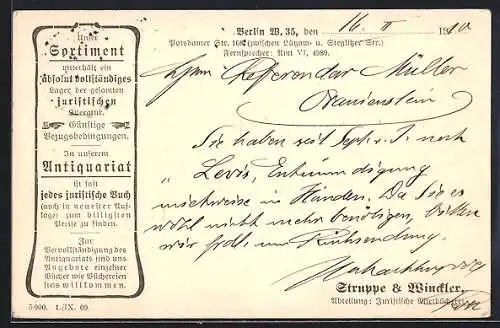 Unser
Sortiment
unterhält ein
absolut vollständiges
Lager der gesamten
juristischen
Literatur.
Günstige
Bezugsbedingungen.
In unserem
Antiquariat
ist fast
jedes juristische Buch
(auch in neuester Auf-
lage) zum billigsten
Preise zu finden.
Zur
Vervollständigung des
Antiquariats sind uns
Angebote einzelner
Bücher wie Büchereien
stets willkommen.
5000. 1./IX. 09.
Berlin W. 35, den 16. II 1910
Potsdamer Str. 108 (zwischen Lützow- u. Steglitzer Str.)
Fernsprecher: Amt VI, 4989.
Herrn Referendar Müller
Oranienstein
Sie haben seit Sept. v. J. noch
„ Levis, Entmündigung
in Händen. Da Sie es
wohl nicht mehr benötigen, bitten
wir frdl. um Rücksendung.
Hochachtungsvoll
Struppe & Winckler,
Abteilung: Juristische Leihbücherei